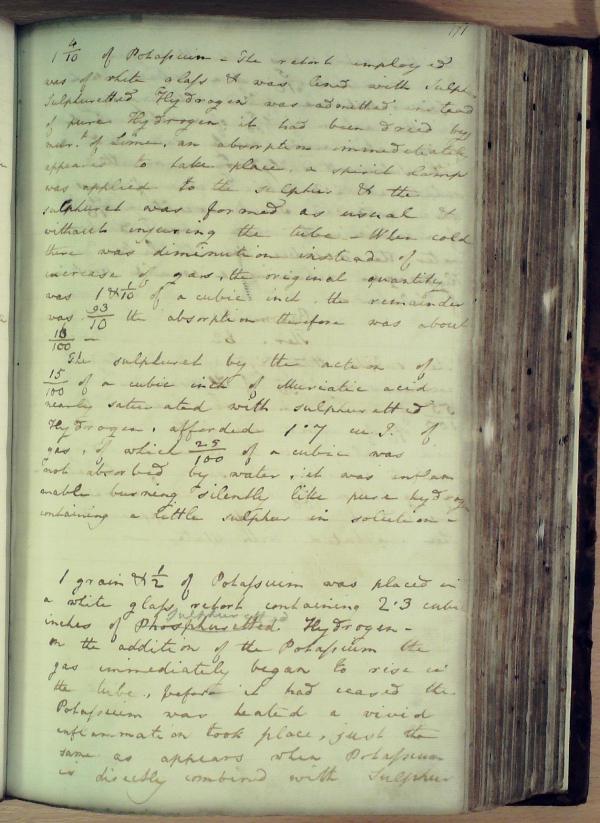 171
1 4/10 of Potassium - The retort employed
was of white glass & was lined with Sulph.
Sulphuretted Hydrogen was admitted instead
of pure Hydrogen it had been dried by
mur.t of Lime, an absorption immediately
appeared to take place, a spirit lamp
was applied to the sulphur & the
sulphuret was formed as usual &
without injuring the tube - When cold
there was diminution instead of
increase of gas, the original quantity
was 1 & 1/10 of a cubic inch the remainder
was 93/10 the absorption therefore was about
16/100 -
The sulphuret by the action of
15/100 of a cubic inch of Muriatic acid
nearly saturated with sulphuretted
Hydrogen, afforded 1.7 cu I. of
gas, of which 25/100 of a cubic was
not absorbed by water, it was inflam
mable burning silently like pure hydrogn
containing a little sulphur in solution -
1 grain & 1/2 of Potassium was placed in
a white glass retort containing 2.3 cubic
Sulphuretted
inches of Phosphuretted Hydrogen -
on the addition of the Potassium the
gas immediately began to rise in
the tube, before it had ceased the
Potassium was heated a vivid
inflammation took place, just the
same as appears when Potassium
is directly combined with Sulphur